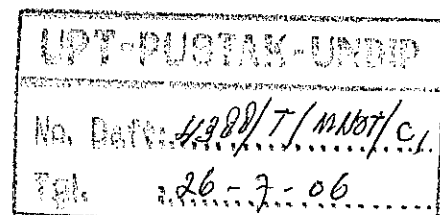 UPT-PUSTAK-UNDIP
No. Daft: 4388/T/MNOT/C1
Tgl. : 26-7-06